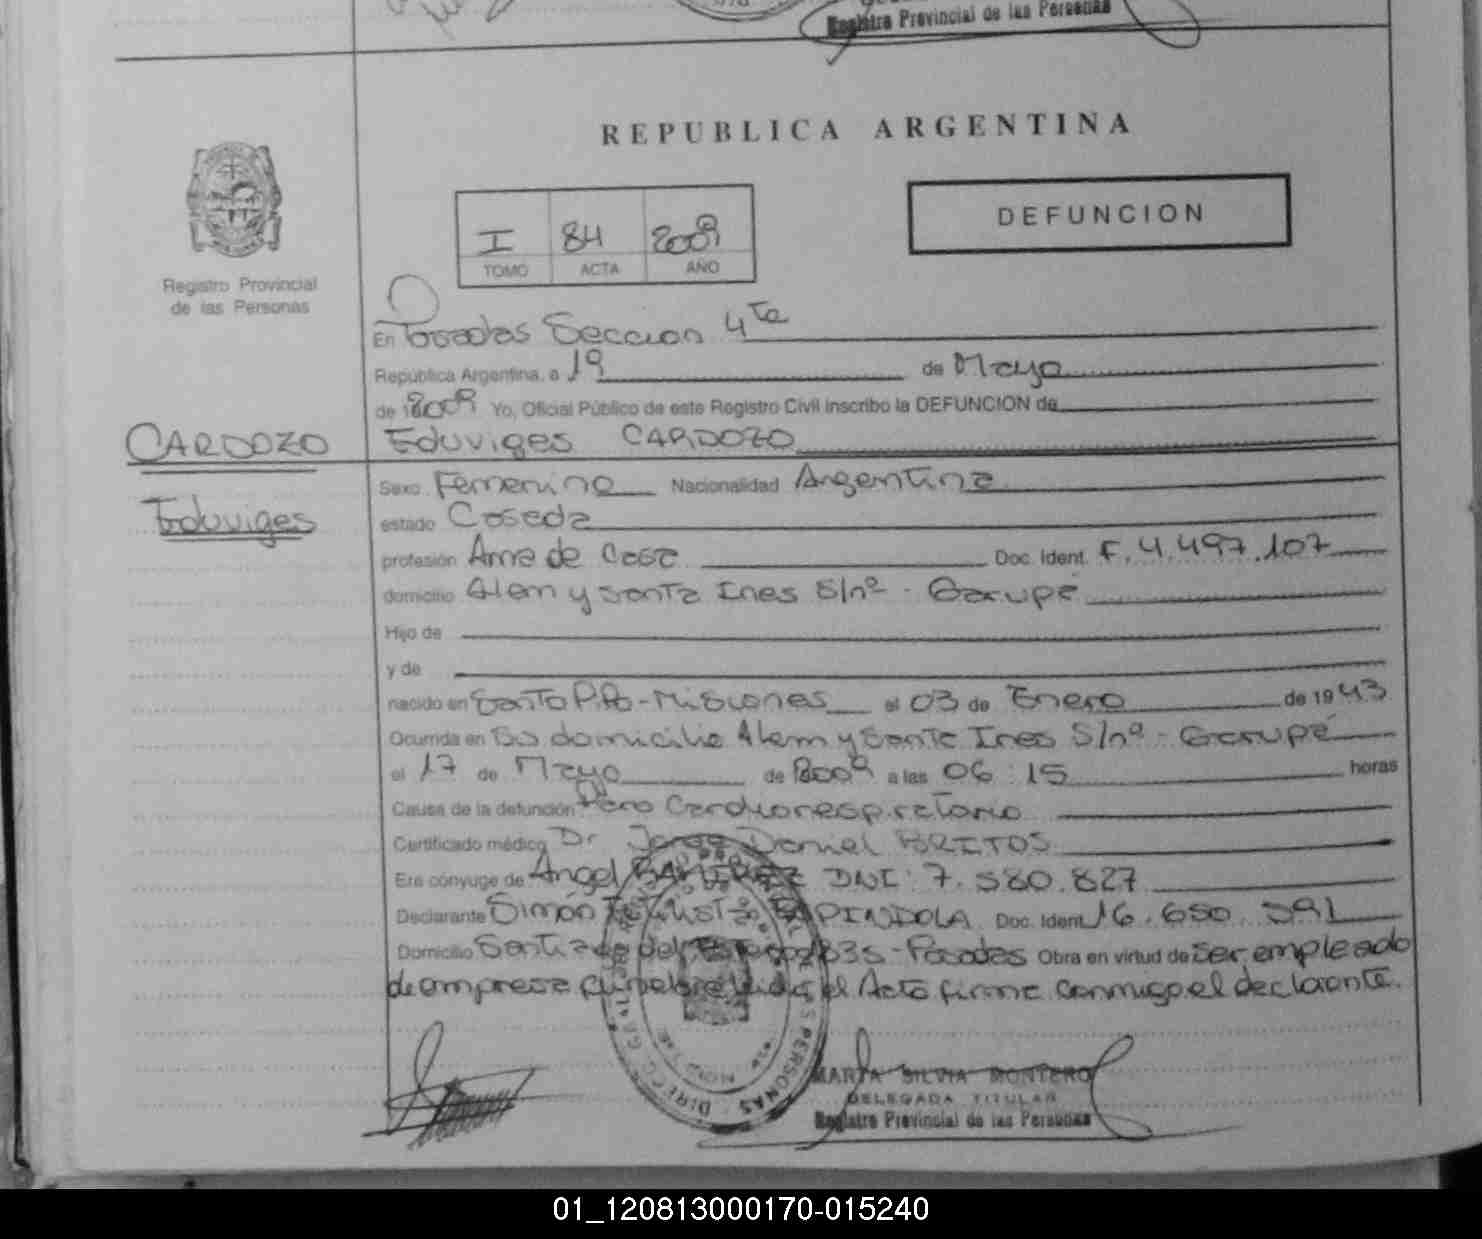 Registro Provincial de las Personas
REPUBLICA ARGENTINA
I 84 2009
TOMO ACTA AÑO
DEFUNCION
Registro Provincial
de las Personas
En Posadas Seccion 4ta
República Argentina, a 19 de Mayo
de 2009 Yo, Oficial Público de este Registro Civil inscribo la DEFUNCION de
CARDOZO
Eduviges
Eduviges CARDOZO
Sexo Femenino Nacionalidad Argentina
estado Casada
profesión Ama de Casa Doc. Ident. F. 4.497.107
domicilio Alem y Santa Ines S/nº - Garupá
Hijo de
y de
nacido en Santo Pipó - Misiones el 03 de Enero de 1943
Ocurrida en Su domicilio Alem y Santa Ines S/nº - Garupá
el 17 de Mayo de 2009 a las 06:15 horas
Causa de la defunción Paro Cardiorespiratorio
Certificado médico Dr Jorge Daniel BRITOS
Era cónyuge de Angel RAMIREZ DNI: 7.580.827
Declarante Simón ESPINDOLA Doc. Ident. 16.650.
Domicilio Santiago del Estero - Posadas Obra en virtud de Ser empleado
de empresa funebre Leida el Acta firma conmigo el declarante.
MARTA SILVIA MONTERO
DELEGADA TITULAR
Registro Provincial de las Personas
01_120813000170-015240